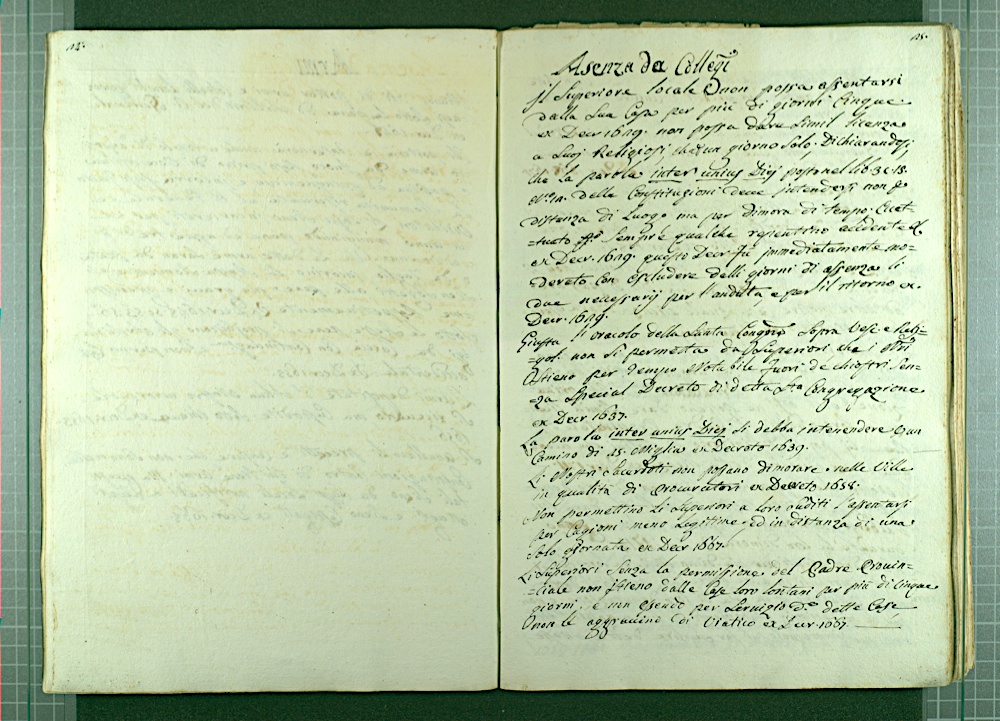 14.
15.
Asenza da Collegi
Il Superiore locale non possa assentarsi
dalla sua Casa per più di giorni Cinque
ex Decr. 1629. non possa dare simil licenza
a Luoj Religiosi, che d'un giorno solo, Dichiarandosi,
che la parola inter unius Diej posta nel lib. 3. c. 13.
delle Constitutioni deve intendersi non p
distanza di Luogo ma per dimora di tempo. Ecet-
-tuato sempre qualche repentino accidente
ex Decr. 1629. questo Decr. fù immediatamente mo-
derato con escludere delli giorni di assenza li
due necessarij per l'andata e per il ritorno ex
Decr. 1629.
Giusta l'oracolo della Santa Congreg. Sopra Vesc. e Reli-
-gol. non si permetta da Superiori che i
stieno per tempo notabile fuori de chiostri sen-
-za special Decreto di detta Sta. Congregazione
ex Decr. 1637.
La parola inter unius Diej si debba intenendere d'un
Camino di 25. Miglia ex Decreto 1639.
Li Nostri Sacerdoti non possano dimorare nelle Ville
in qualità di Procuratori ex Decreto 1658.
Non permettino li Superiori a loro sudditi l'assentarsi
per Cagioni meno legitime, ed in distanza di una
sola giornata ex Decr. 1667.
Li Superiori senza la permissione del Padre Provin-
-ciale non stieno dalle Case loro lontani per più di Cinque
giorni, e non essendo per servigio d.e dette Case
non le aggravino di Viatico ex Decr. 1667.